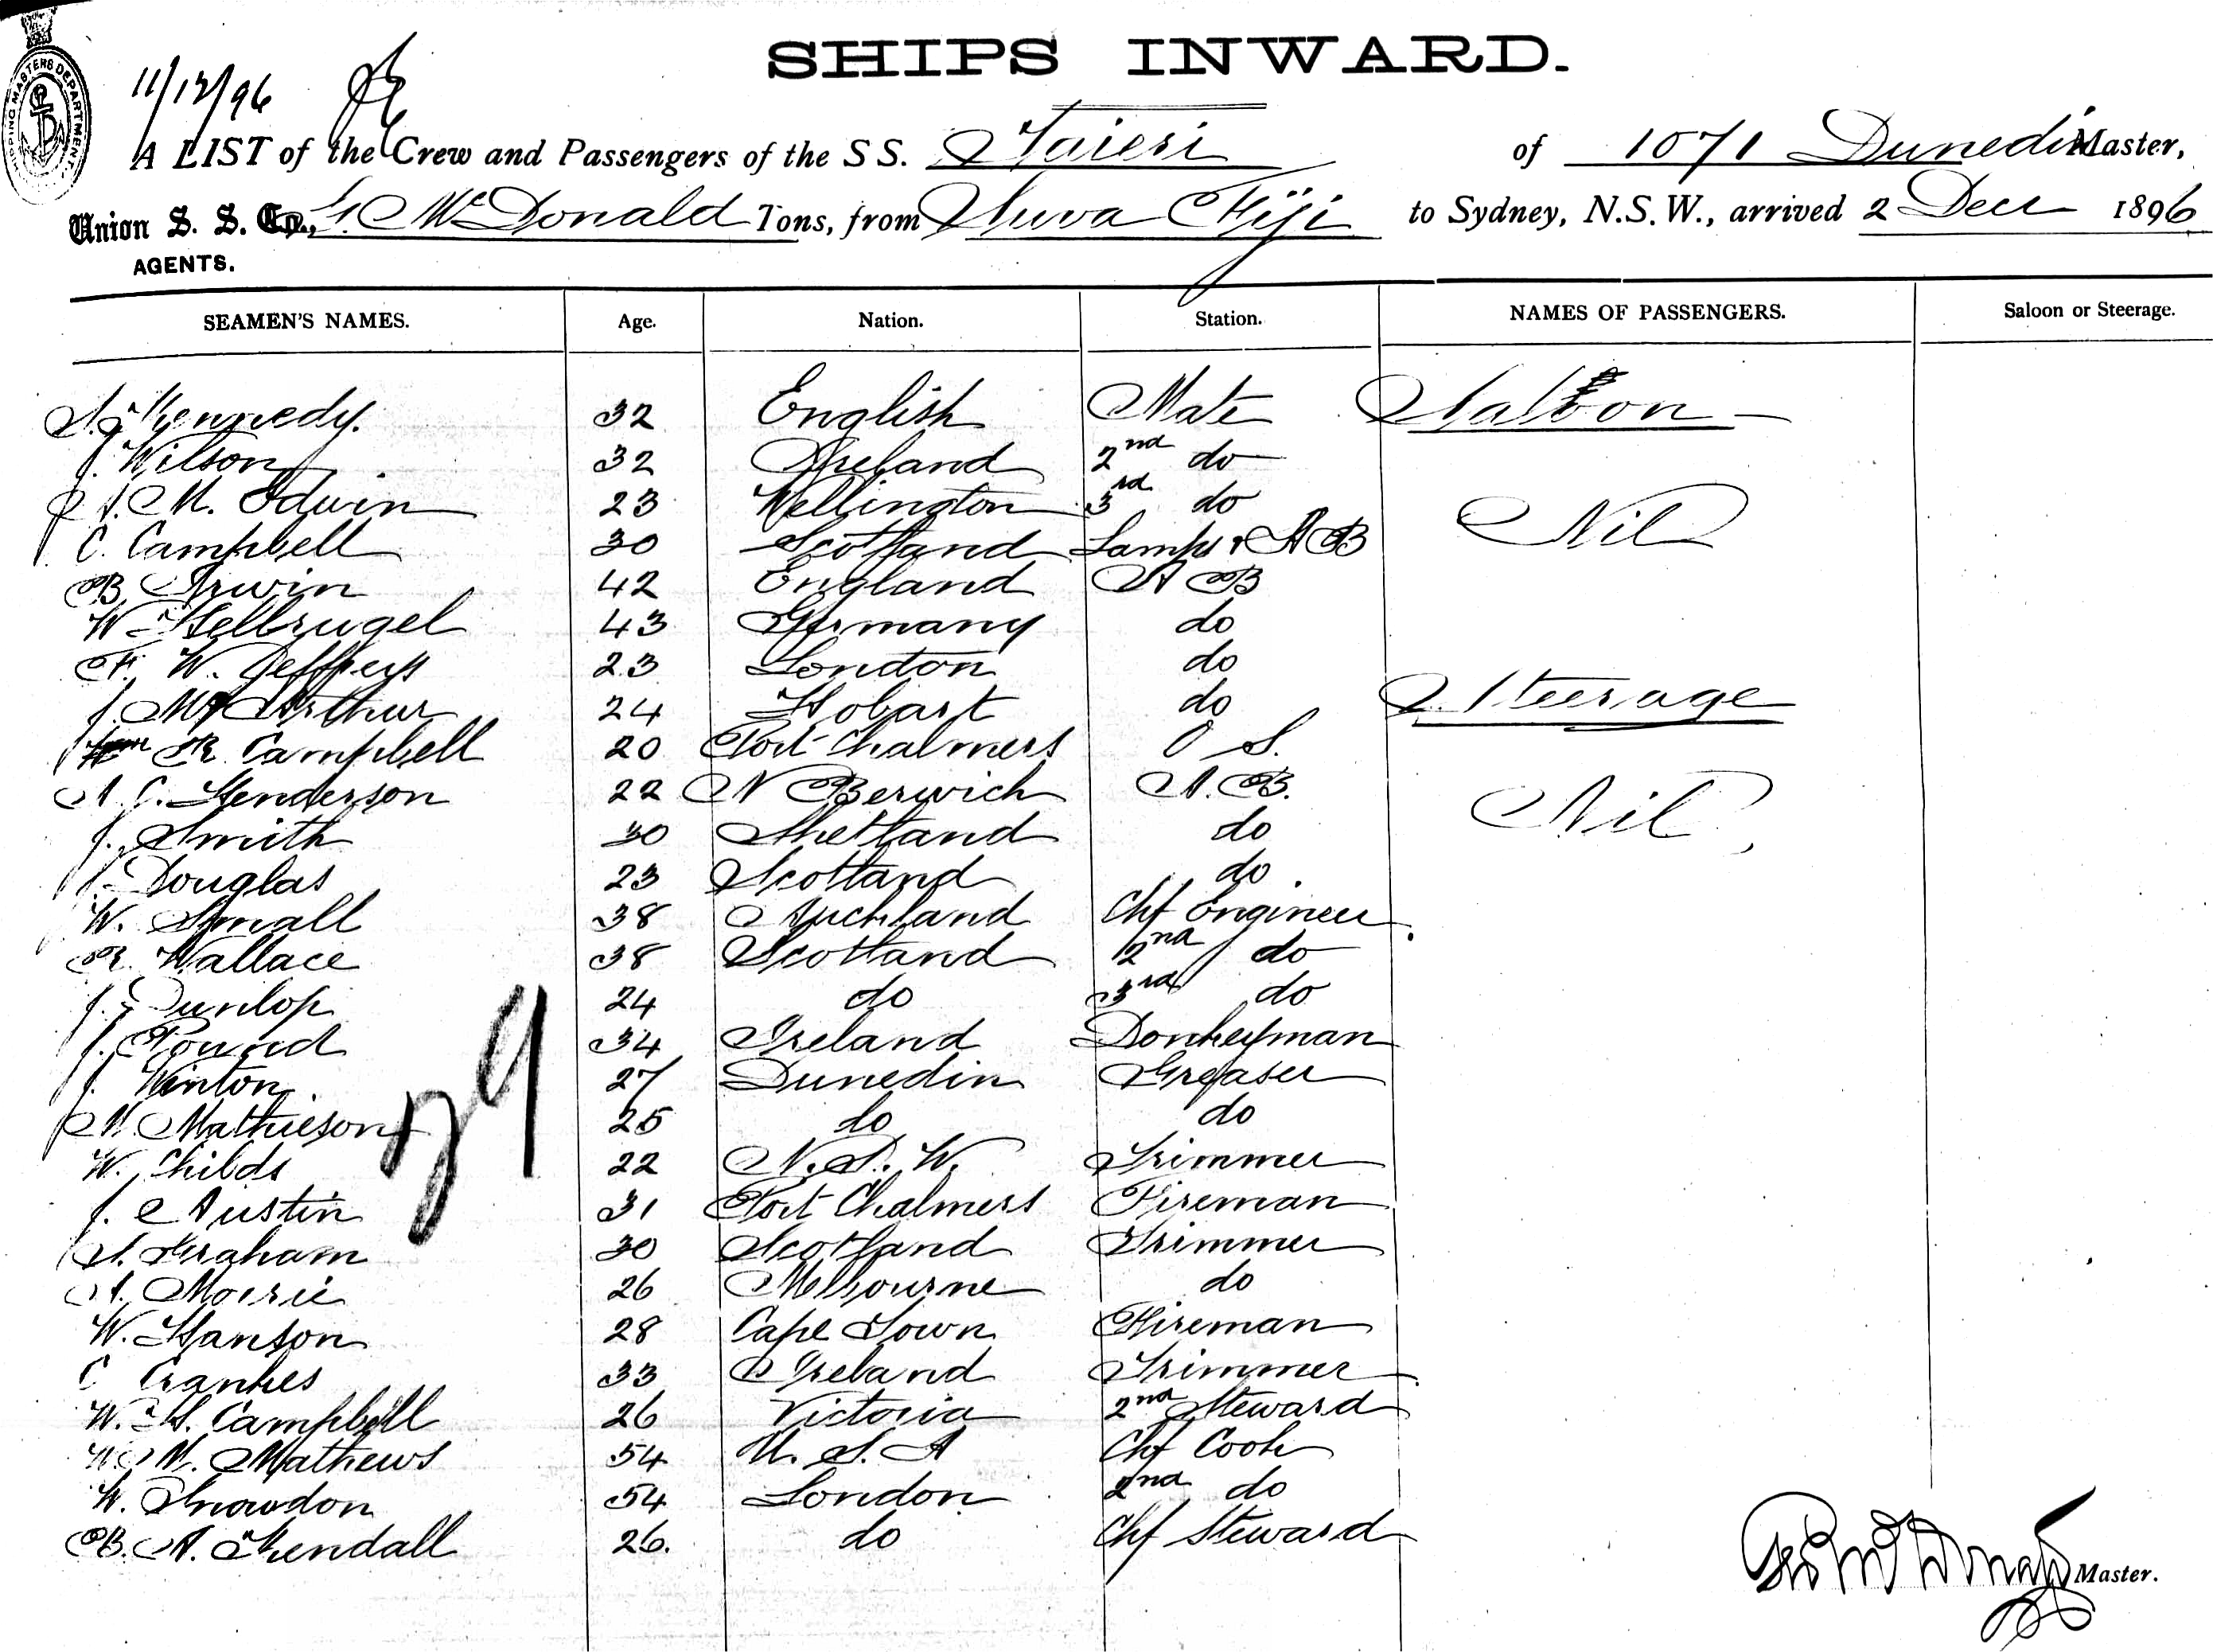 SHIPPING MASTERS DEPARTMENT
SHIPS INWARD.
11/12/96
A LIST of the Crew and Passengers of the S S. Taieri of 1071 Dunedin Master,
Union S. S. Co., G McDonald Tons, from Suva Fiji to Sydney, N.S.W., arrived 2 Dec 1896
AGENTS.
SEAMEN'S NAMES. Age. Nation. Station. NAMES OF PASSENGERS. Saloon or Steerage.
Kennedy. 32 English Mate Saloon
J. Wilson 32 Ireland 2nd do
A. M. Edwin 23 Wellington 3rd do Nil
C. Campbell 30 Scotland Lamps & A B
B Irwin 42 England A B
W Helbrugel 43 Germany do
F. W. Jeffreys 23 London do
J. McArthur 24 Hobart do Steerage
R. Campbell 20 Port Chalmers O S.
A. J. Henderson 22 N Berwick A. B. Nil
J. Smith 30 Shetland do
J. Douglas 23 Scotland do.
W. Small 38 Auckland Chf Engineer
R. Wallace 38 Scotland 2nd do
J. Dunlop 24 do 3rd do
J. Pound 34 Ireland Donkeyman
J. Winton 27 Dunedin Greaser
N. Mathieson 25 do do
29
W. Childs 22 N. S. W. Trimmer
J. Austin 31 Port Chalmers Fireman
S. Graham 30 Scotland Trimmer
A. 26 Melbourne do
W. Hanson 28 Cape Town Fireman
C 33 Ireland Trimmer
W. H. Campbell 26 Victoria 2nd Steward
W. M. Mathews 54 U. S. A Chf Cook
W. Snowdon 54 London 2nd do
B. A. Kendall 26. do Chf Steward
Master.